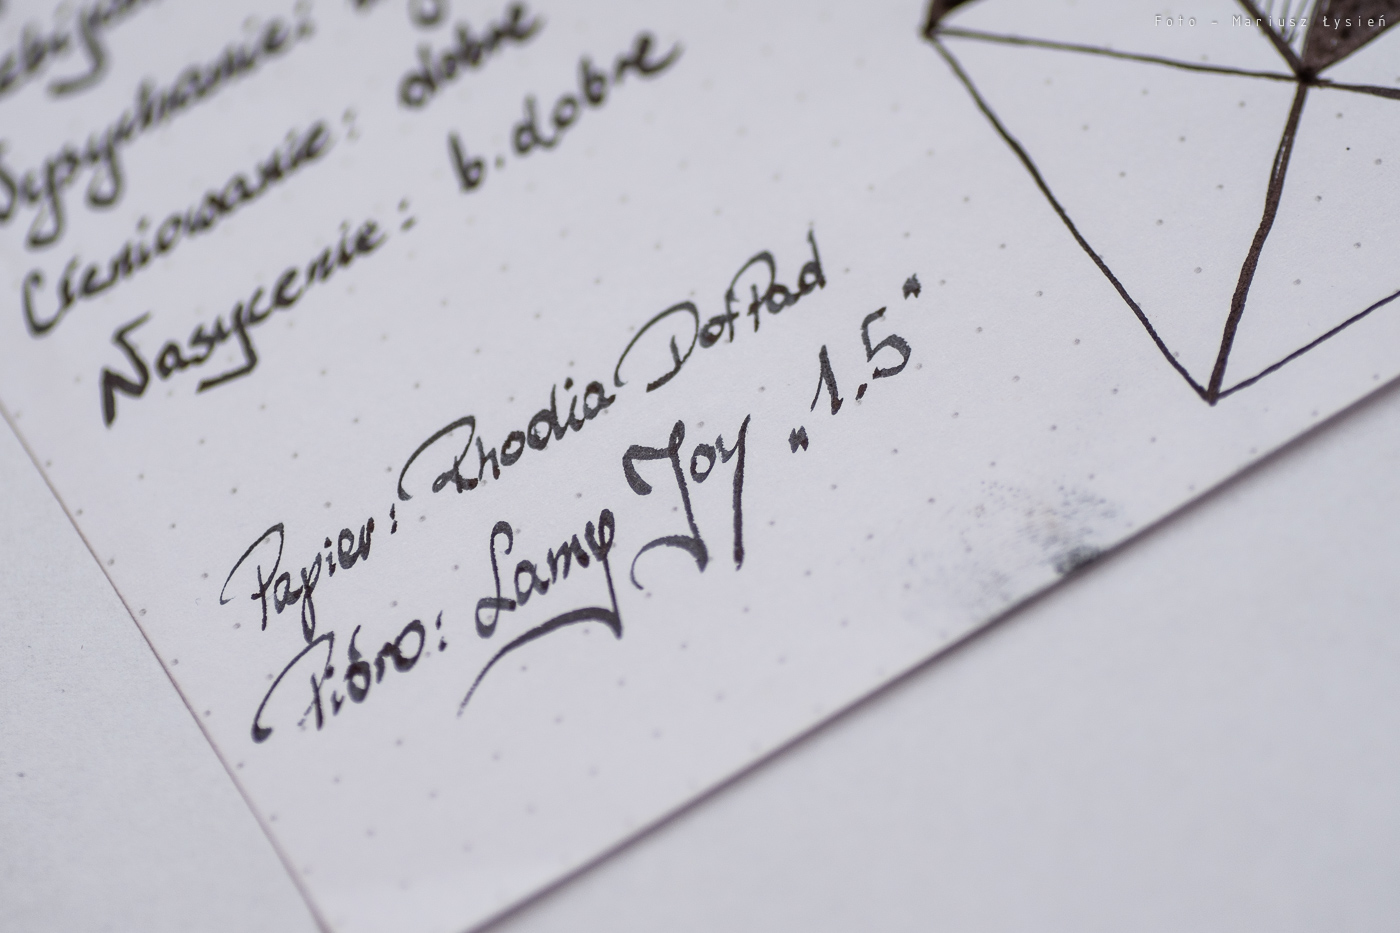 Foto - Mariusz Łysień
Wysychanie:
Cieniowanie: dobre
Nasycenie: b.dobre
Papier: Rhodia DotPad
Pióro: Lamy Joy „1.5"